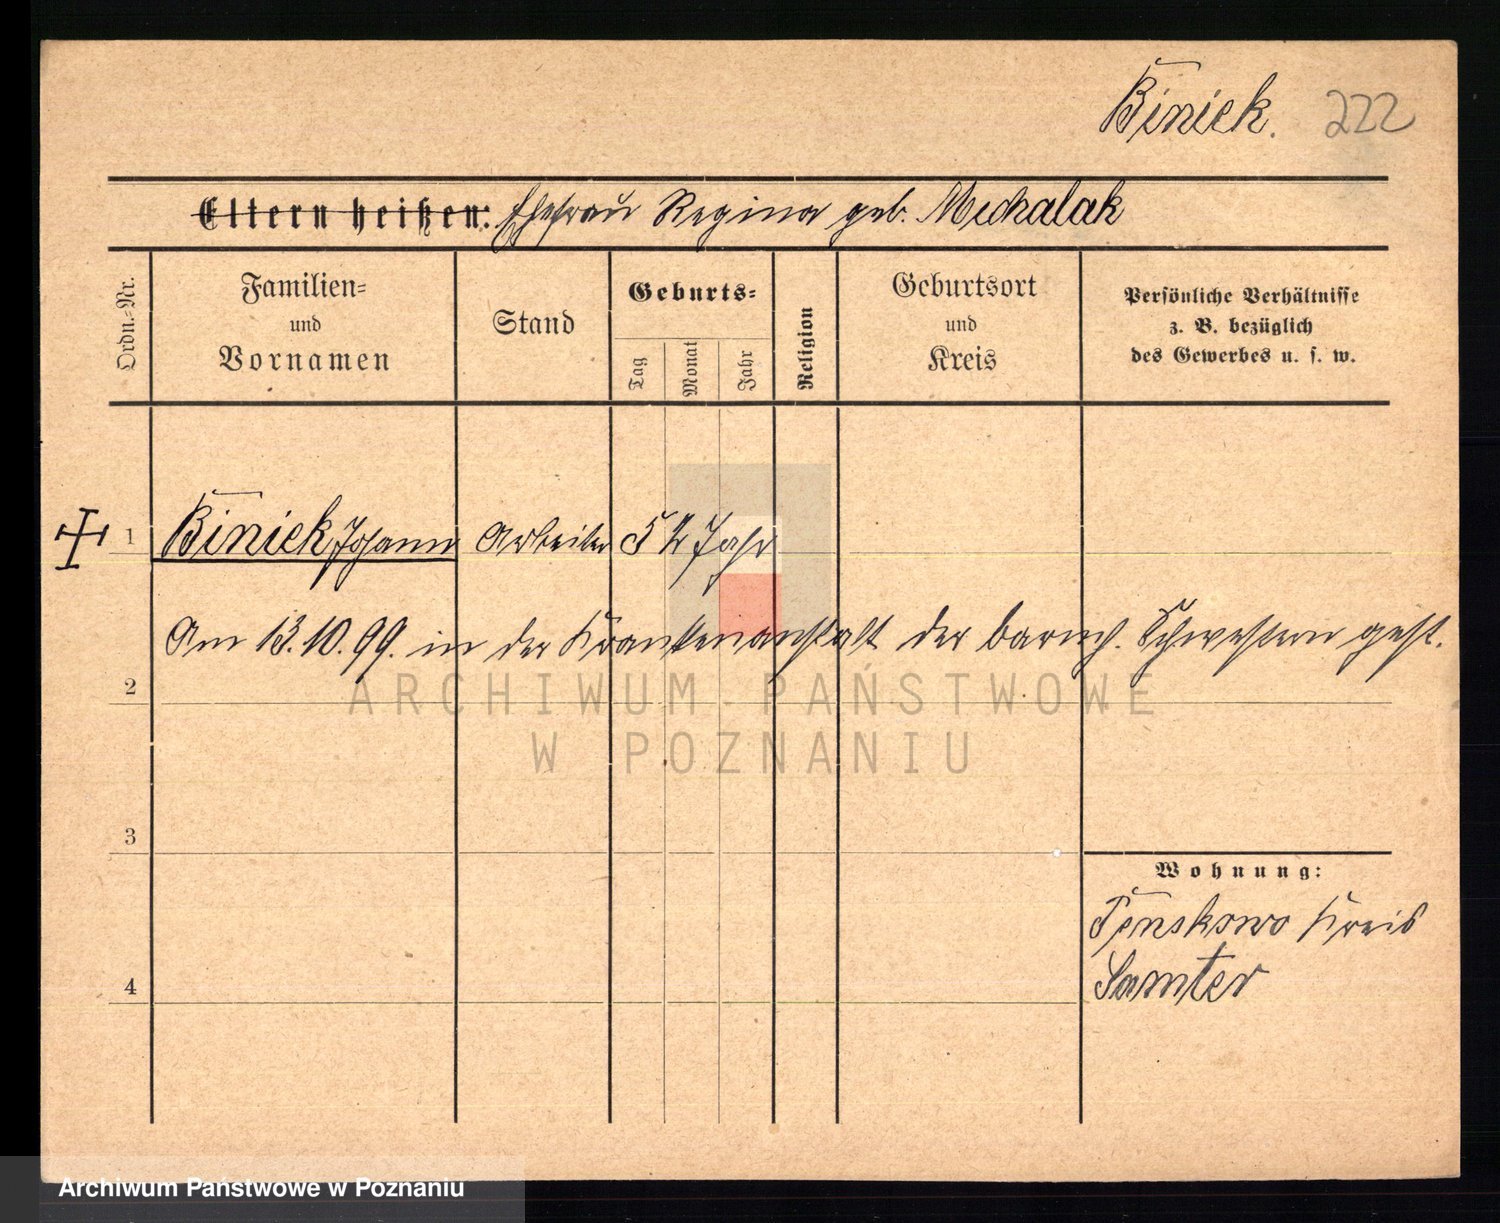 Biniek. 222
Eltern heißen: Ehefrau Regina geb. Michalak
Ordn.-Nr.
Familien-
und
Vornamen
Stand
Geburts-
Tag
Monat
Jahr
Religion
Geburtsort
und
Kreis
Persönliche Verhältnisse
z. B. bezüglich
des Gewerbes u. s. w.
1 Biniek Johann Arbeiter 52 Jahr
Am 13.10.99. in der Krankenanstalt der barmh. Schwestern gest.
2
ARCHIWUM PAŃSTWOWE
W POZNANIU
3
Wohnung:
Kreis
Samter
4
Archiwum Państwowe w Poznaniu